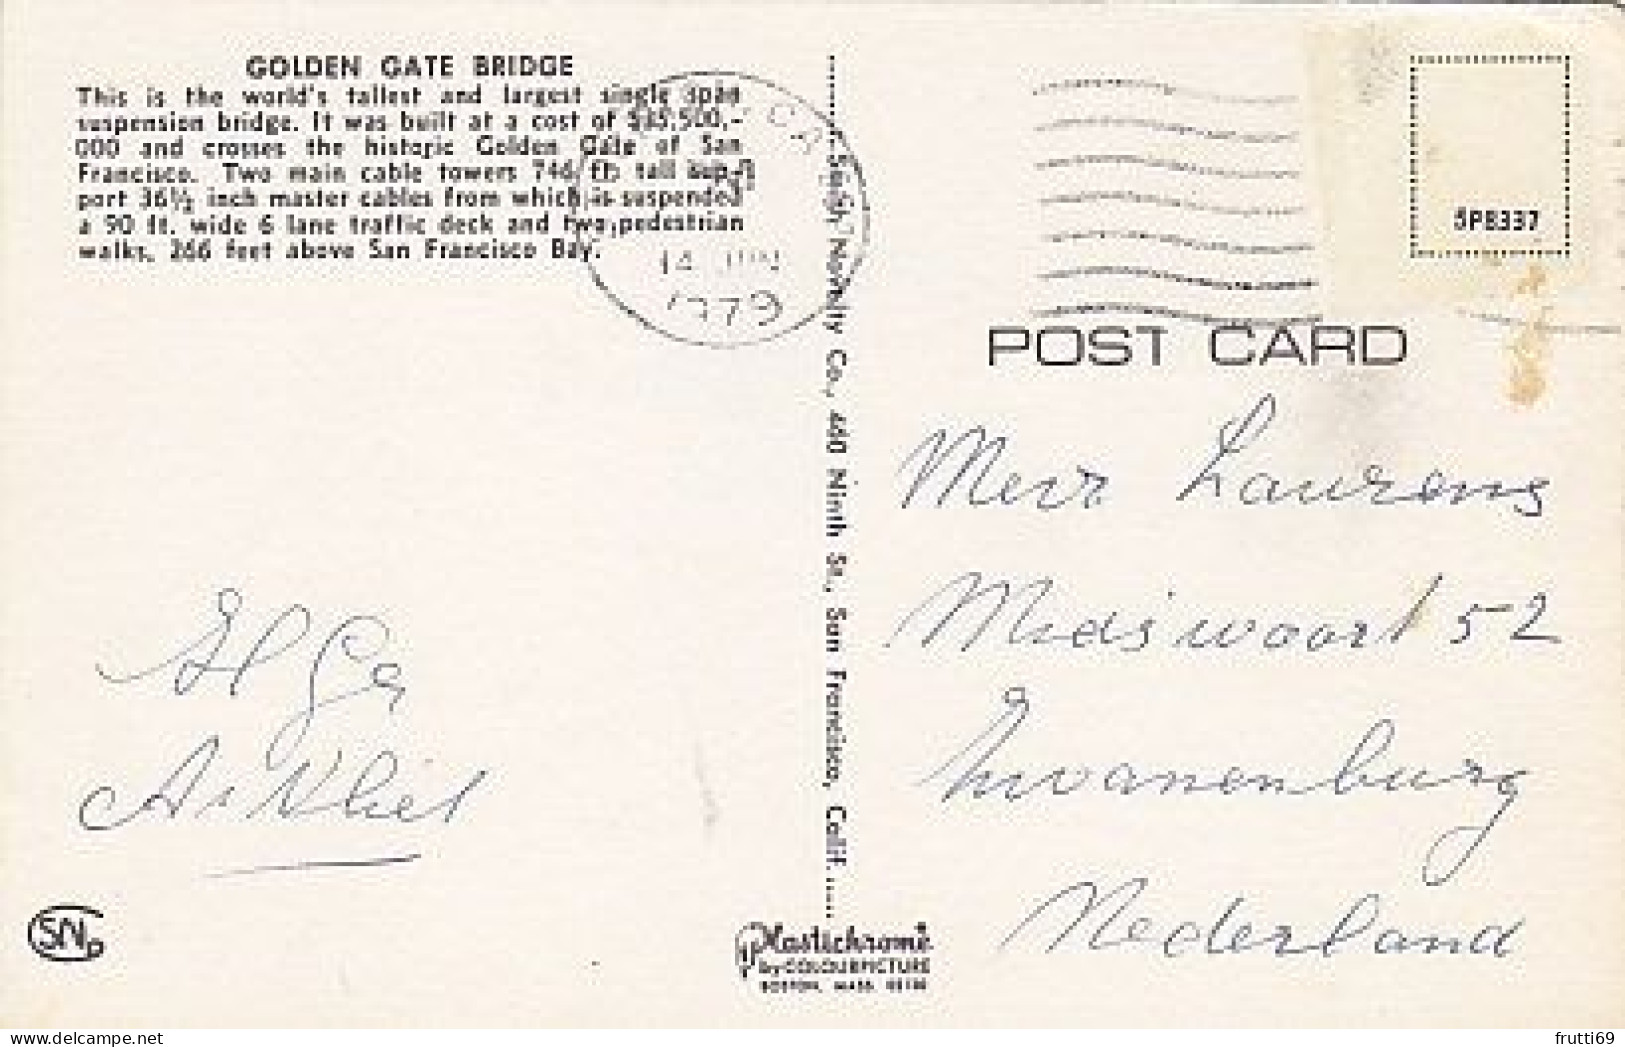 GOLDEN GATE BRIDGE
This is the world's tallest and largest single span
suspension bridge. It was built at a cost of $35,500,-
000 and crosses the historic Golden Gate of San
Francisco. Two main cable towers 746 ft. tall sup-
port 36½ inch master cables from which is suspended
a 90 ft. wide 6 lane traffic deck and two pedestrian
walks, 266 feet above San Francisco Bay.
CA
14 JUN
1979
Smith Novelty Co., 460 Ninth St., San Francisco, Calif.
5P8337
POST CARD
Laurens
52
Zwanenburg
Nederland
SN
Plastichrome
by COLOURPICTURE
BOSTON, MASS.
frutti69